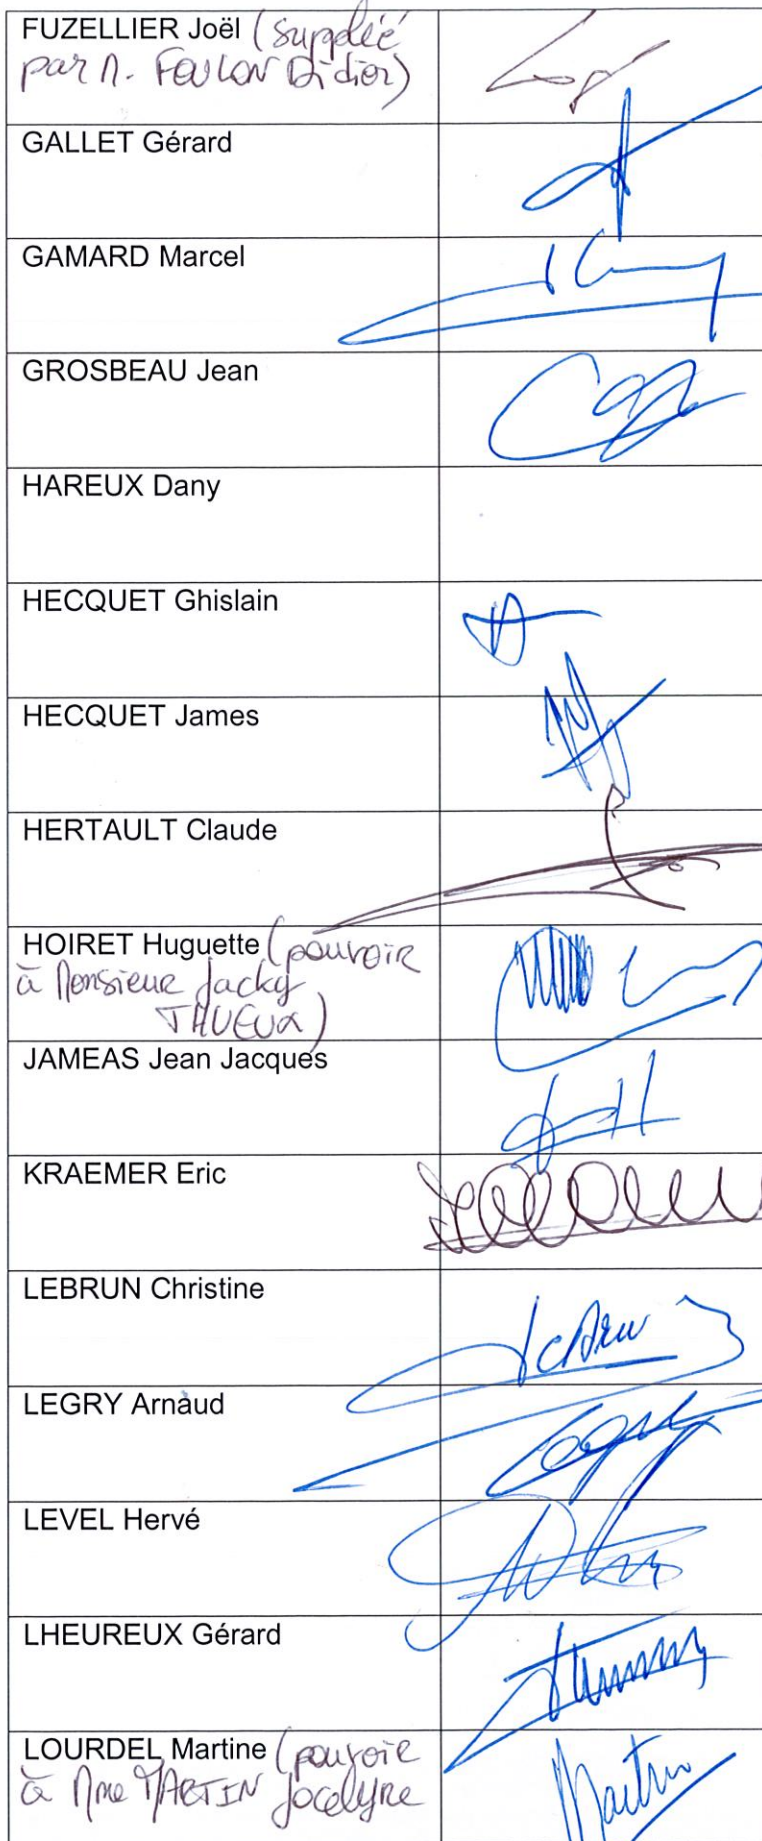 FUZELLIER Joël (suppléé
par M. FOULON Didier)
GALLET Gérard
GAMARD Marcel
GROSBEAU Jean
HAREUX Dany
HECQUET Ghislain
HECQUET James
HERTAULT Claude
HOIRET Huguette (pouvoir
à Monsieur Jacky
THUEUX)
JAMEAS Jean Jacques
KRAEMER Eric
LEBRUN Christine
LEGRY Arnaud
LEVEL Hervé
LHEUREUX Gérard
LOURDEL Martine (pouvoir
à Mme MARTIN Jocelyne
Martin